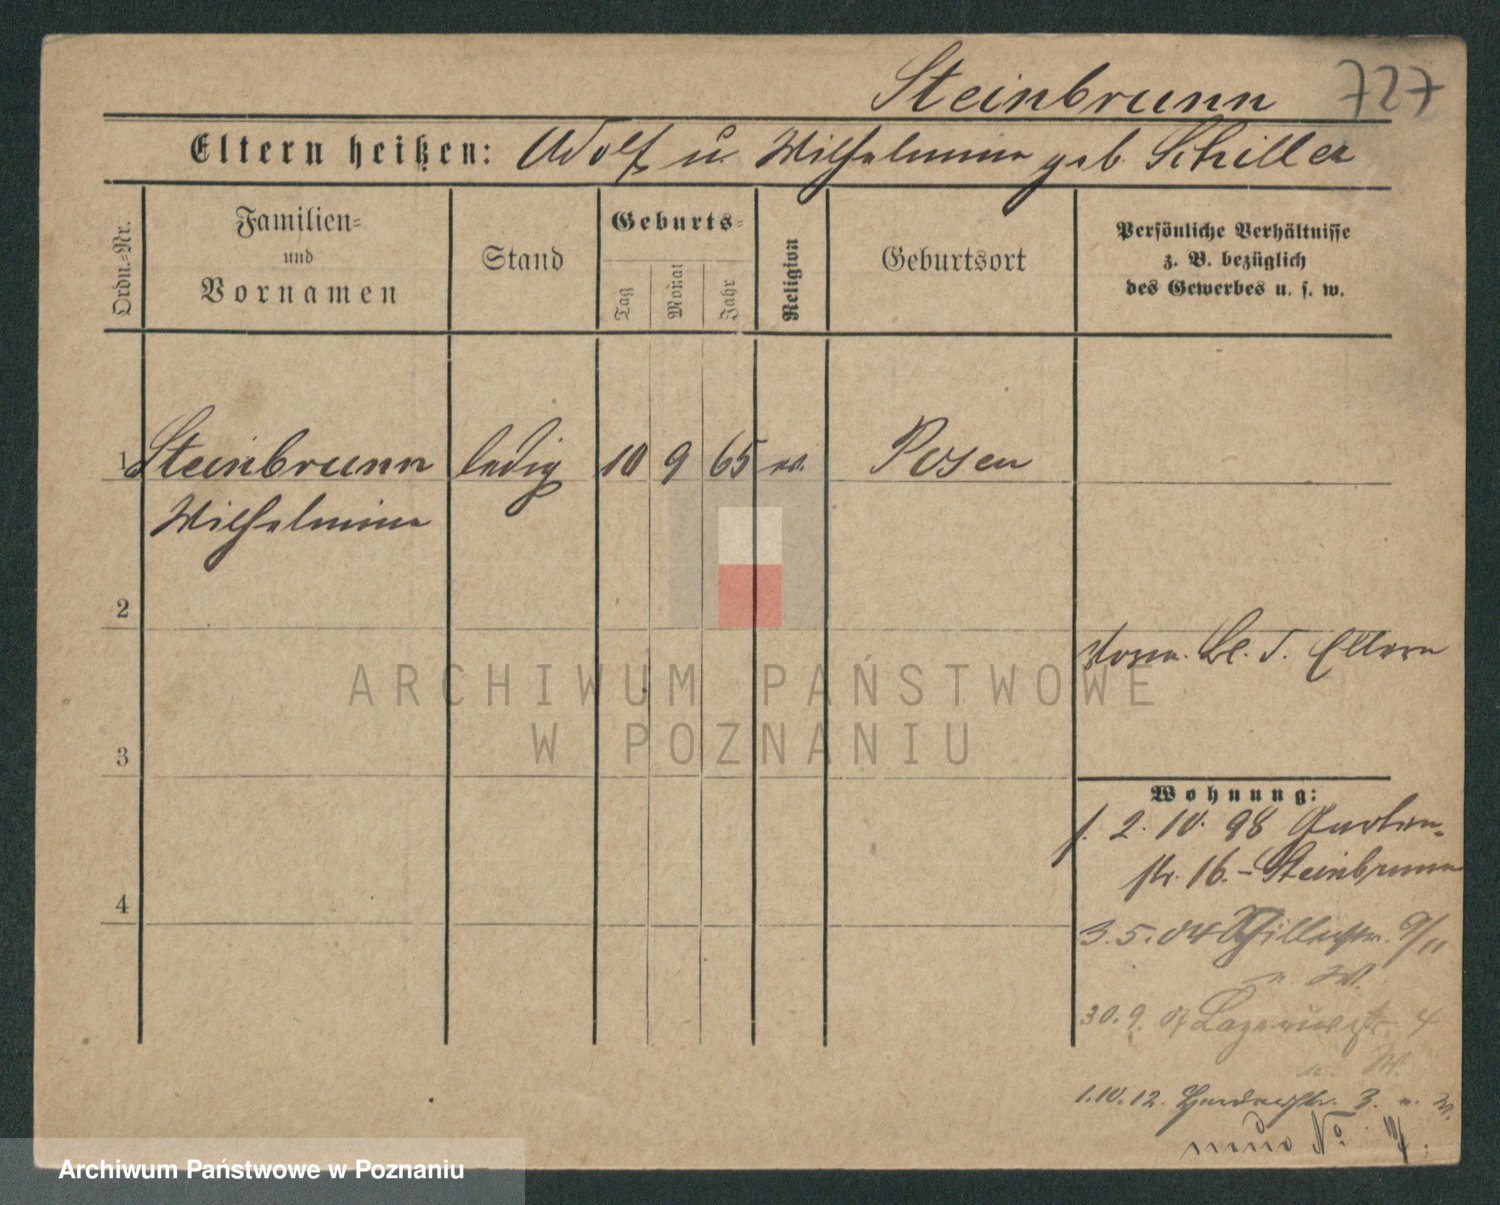 Steinbrunn 727
Eltern heißen: Adolf u Wilhelmine geb Schiller
Ordn.-Nr.
Familien-
und
Vornamen
Stand
Geburts-
Tag
Monat
Jahr
Religion
Geburtsort
Persönliche Verhältnisse
z. B. bezüglich
des Gewerbes u. s. w.
1 Steinbrunn ledig 10 9 65 ev. Posen
Wilhelmine
2
Bl. d. Eltern
3
Wohnung:
f. 2. 10. 98 Garten-
str. 16. - Steinbrunn
4
3. 5. 04 Schillerstr. 9/11
n. W.
30. 9. 4
n. W.
1.10.12. 3. n. W.
neue No.
ARCHIWUM PAŃSTWOWE
W POZNANIU
Archiwum Państwowe w Poznaniu